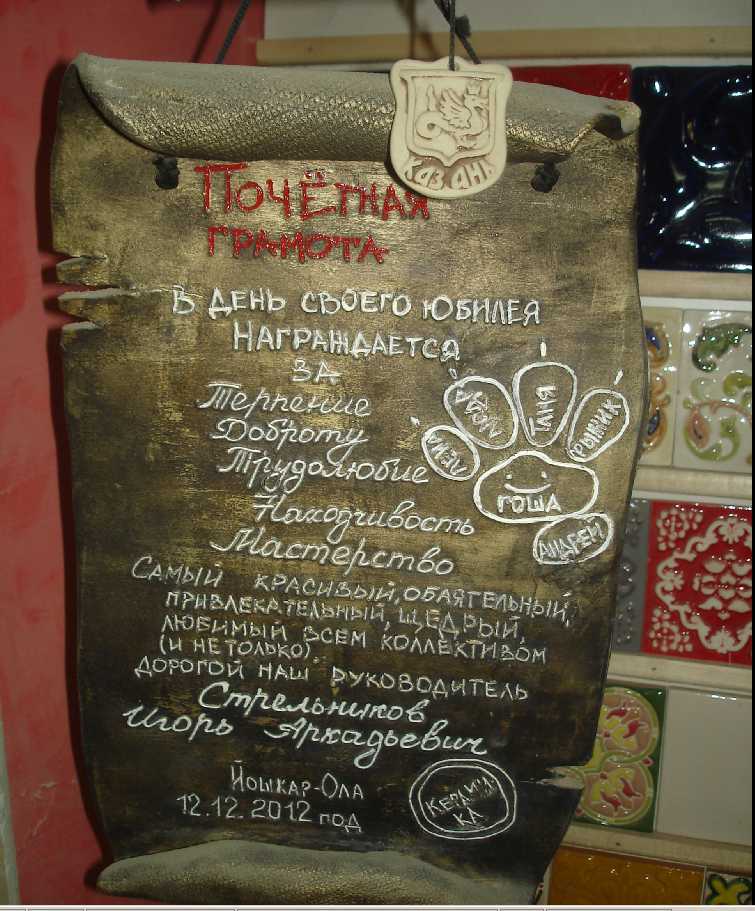 КАЗАНЬ
ПОЧЁТНАЯ
ГРАМОТА
В ДЕНЬ СВОЕГО ЮБИЛЕЯ
НАГРАЖДАЕТСЯ
ЗА
Терпение
Доброту
Трудолюбие
Находчивость
Мастерство
ЛЕНА
ТАНЯ
РЫЖИК
ГОША
АНДРЕЙ
САМЫЙ КРАСИВЫЙ, ОБАЯТЕЛЬНЫЙ,
ПРИВЛЕКАТЕЛЬНЫЙ, ЩЕДРЫЙ,
ЛЮБИМЫЙ ВСЕМ КОЛЛЕКТИВОМ
(И НЕ ТОЛЬКО)
ДОРОГОЙ НАШ РУКОВОДИТЕЛЬ
Стрельников
Игорь Аркадьевич
ЙОШКАР-ОЛА
12.12.2012 ГОД